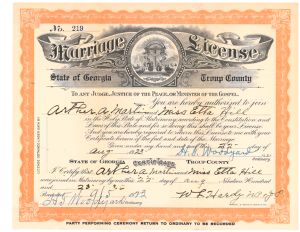 No. 219
Marriage License.
State of Georgia Troup County
TO ANY JUDGE, JUSTICE OF THE PEACE, OR MINISTER OF THE GOSPEL.
You are hereby authorized to join
Arthur Martin and Miss Etta Hill
in the Holy State of Matrimony, according to the Constitution and
Laws of this State and for so doing this shall be your License.
And you are hereby required to return this License to me with your
Certificate hereon of the fact and date of the Marriage.
Given under my hand and seal this 22
Aug 1923 H. T. Woodyard
STATE OF GEORGIA Certificate TROUP COUNTY
I Certify that Arthur Martin and Miss Etta Hill
were joined in Matrimony by me this 22 day of Aug Nineteen Hundred
and 23
Recorded 9/5 1923
PARTY PERFORMING CEREMONY RETURN TO ORDINARY TO BE RECORDED